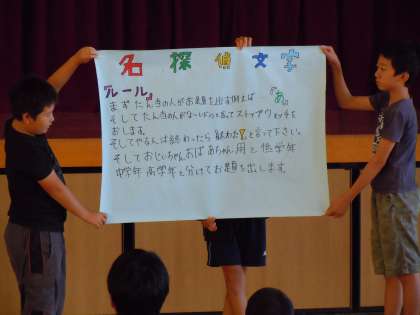 名探偵文字
『ルール』
まずたん当の人がお題を出す例えば…『あ』
そしてたん当の人がよーいドンと言ってストップウォッチを
おします。
そしてやる人は終わったら終わた!と言って下さい。
そしておじいちゃんおばあちゃん用と低学年
中学年高学年と分けてお題を出します。